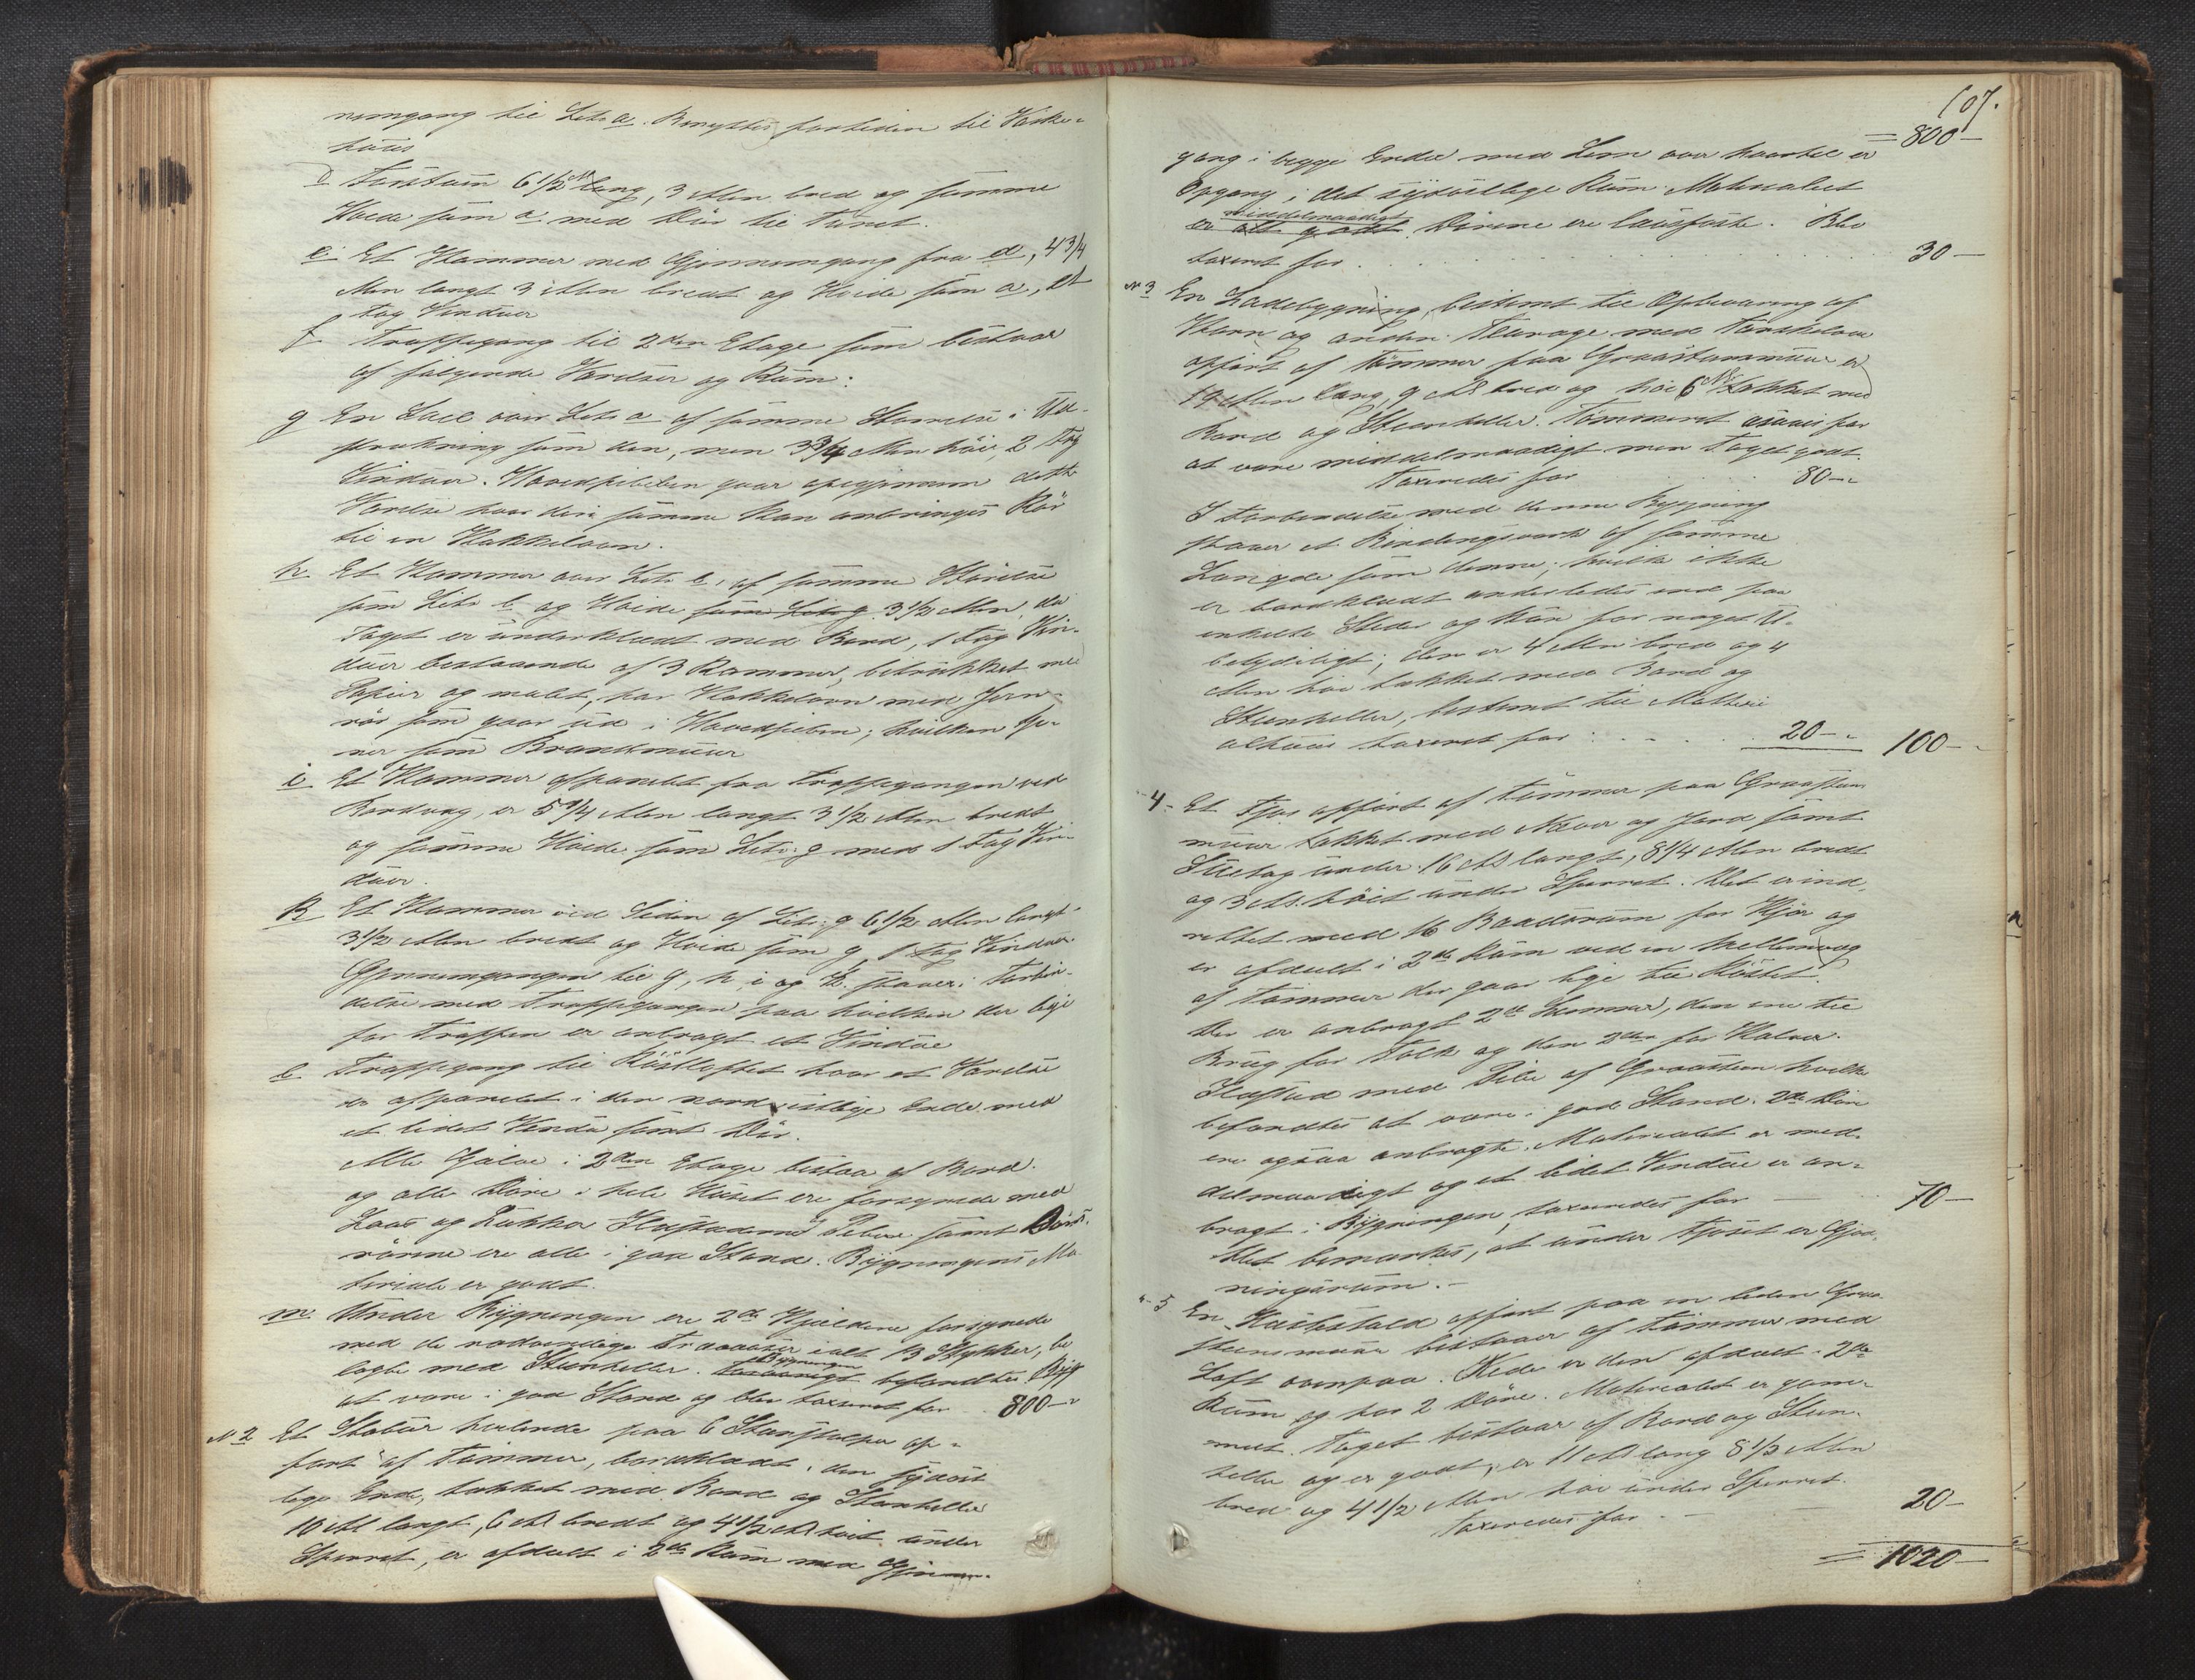 nemgang til Litr a. Benyttes fortiden til Kakke-
huus
d Forstum 6 1/2 Al lang, 3 Alen bred og samme
Høide som a med Dør til Tunet.
e. Et Kammer med Gjennemgang fra d, 4 3/4
Alen langt 3 Alen bredt og Høide som a, et
Fag Vinduer
f Trappegang til 2den Etage som bestaar
af følgende Værelser og Rum:
g En Sal over Litr a af samme Størrelse i Ud-
strækning som den, men 3 3/4 Alen høi, 2 Fag
Vinduer. Hovedpiben gaar opigjennem dette
Værelse hvor der i samme kan anbringes Rør
til en Kakkelovn.
h. Et Kammer over Litr b, af samme Størrelse
som Litr b og Høide som Litr g 3 1/2 Alen, da
Taget er underklædt med Bord, 1 Fag Vin-
duer bestaaende af 3 Rammer, betrukket med
Papir og malet, har Kakkelovn med Jern-
rør som gaar ud i Hovedpiben; hvilken tje-
ner som Brandmuur
i Et Kammer afpanelet fra Trappegangen ved
Bordvæg, er 5 3/4 Alen langt 3 1/2 Alen bredt
og samme Høide som Litr. g med 1 Fag Vin-
duer.
k Et Kammer ved Siden af Litr. g 6 1/2 Alen langt
3 1/2 Alen bredt og Høide som g, 1 Fag Vinduer
Gjennemgangen til g, h, i og k. staaer i Forbin-
delse med Trappegangen paa hvilken der lige
for Trappen er anbragt et Vindue
l Trappegang til Røstloftet hvor et Værelse
er afpanelet i den nordvestlige Ende med
et lidet Vindu samt Dør.
Alle Gulve i 2den Etage bestaa af Bord
og alle Døre i hele Huset ere forsynede med
Laas og Lukker Ildstederne Piberne samt
rørene ere alle i god Stand. Bygningens Ma-
teriale er godt.
m Under Bygningen ere 2de Kjeldere forsynede
med de nødvendige Traaaser ialt 13 Stykker, be
lagte med Steenheller. Bygningen befandtes
at være i god Stand og blev taxeret for . 800-"
N 2 Et Stabur hvilende paa 6 Steenstolper op-
ført af Tømmer, bordklædt i den sydøst
lige Ende, tækket med Bord og Steenheller
10 Al langt, 6 Al bredt og 4 1/2 Al høit under
Sperret, er afdeelt i 2de Rum med Gjennem-
107.
= 800-
gang i begge Ender med Lem over hvortil er
Opgang i det sydøstlige Rum. Materialet
er middelmaadigt alt godt. Dørene ere laasfaste. Blev
taxeret for . . . . . 30-
N 3 En Ladebygning, bestemt til Opbevaring af
Korn og anden Fourage med Tærskeloe
opført af Tømmer paa Graasteensmuur er
19 Alen lang, 9 Al bred og høi 6 Al tækket med
Bord og Steenheller. Tømmeret ansaaes for
at være middelmaadigt men Taget godt.
Taxeredes for . . . 80-"
I Forbindelse med denne Bygning
staaer et Bindingsværk af samme
Længde som denne, hvilke ikke
er bordklædt anderledes end paa
enkelte Steder og kun for noget U-
betydeligt; den er 4 Alen bred og 4
Alen høi tækket med Bord og
Steenheller, bestemt til
altsaa taxeret for . . . 20-" 100-"
" 4- Et Fjøs opført af Tømmer paa Graasteens
muur tækket med Næver og Jord samt
Sletag under 16 Al langt, 8 1/4 Alen bredt
og 3 Al. høit under Sperret. Det er ind-
rettet med 16 Baaderum for Kjør og
er afdeelt i 2de Rum ved en Mellemvæg
af Tømmer der gaar lige til Røstet.
Der er anbragt 2de Lemmer, den ene til
Brug for Folk og den 2den for Kalver.
Ildsted med Pibe af Graasteen hvilke
befandtes at være i god Stand. 2de Døre
ere ogsaa anbragte. Materialet er mid-
delmaadigt og et lidet Vindue er an-
bragt i Bygningen, taxeredes for — 70-
Det bemærkes, at under Fjøset er Gjød-
ningsrum.-
" 5 En Hestestald opført paa en liden Graa
steensmuur bestaaer af Tømmer med
Loft ovenpaa. Nede er den afdeelt i 2de
Rum og har 2 Døre. Materialet er gam-
melt. Taget bestaar af Bord og Steen-
heller og er godt, er 11 Al lang 8 1/2 Alen
bred og 4 1/2 Alen høi under Sperret.
Taxeredes for . - 20-
= 1020-